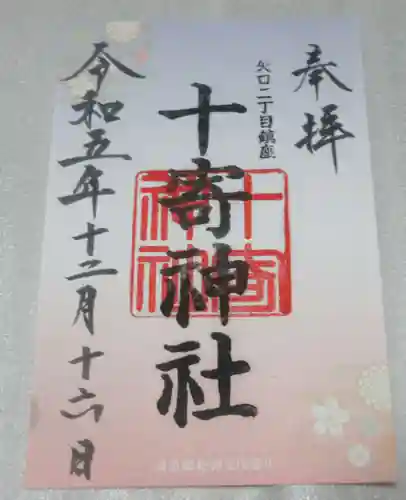 奉拝
矢口二丁目鎮座
十寄神社
令和五年十二月十六日
十寄神社